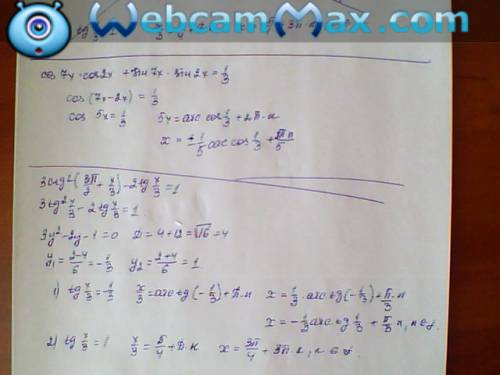 WebcamMax.com
cos 7x · cos 2x + sin 7x · sin 2x = 1/3
cos (7x - 2x) = 1/3
cos 5x = 1/3    5x = arccos 1/3 + 2π·n
x = ±1/5 arccos 1/3 + 2πn/5
3ctg²(3π/2 + x/3) - 2tg x/3 = 1
3tg² x/3 - 2tg x/3 = 1
3y² - 2y - 1 = 0    D = 4 + 12 = √16 = 4
y₁ = 2-4/6 = -1/3    y₂ = 2+4/6 = 1
1) tg x/3 = -1/3    x/3 = arctg(-1/3) + π·n    x = 1/3 · arctg(-1/3) + π/3 · n
x = -1/3 arctg 1/3 + π/3 n, n∈z.
2) tg x/3 = 1    x/3 = π/4 + π·n    x = 3π/4 + 3π·n, n∈z.